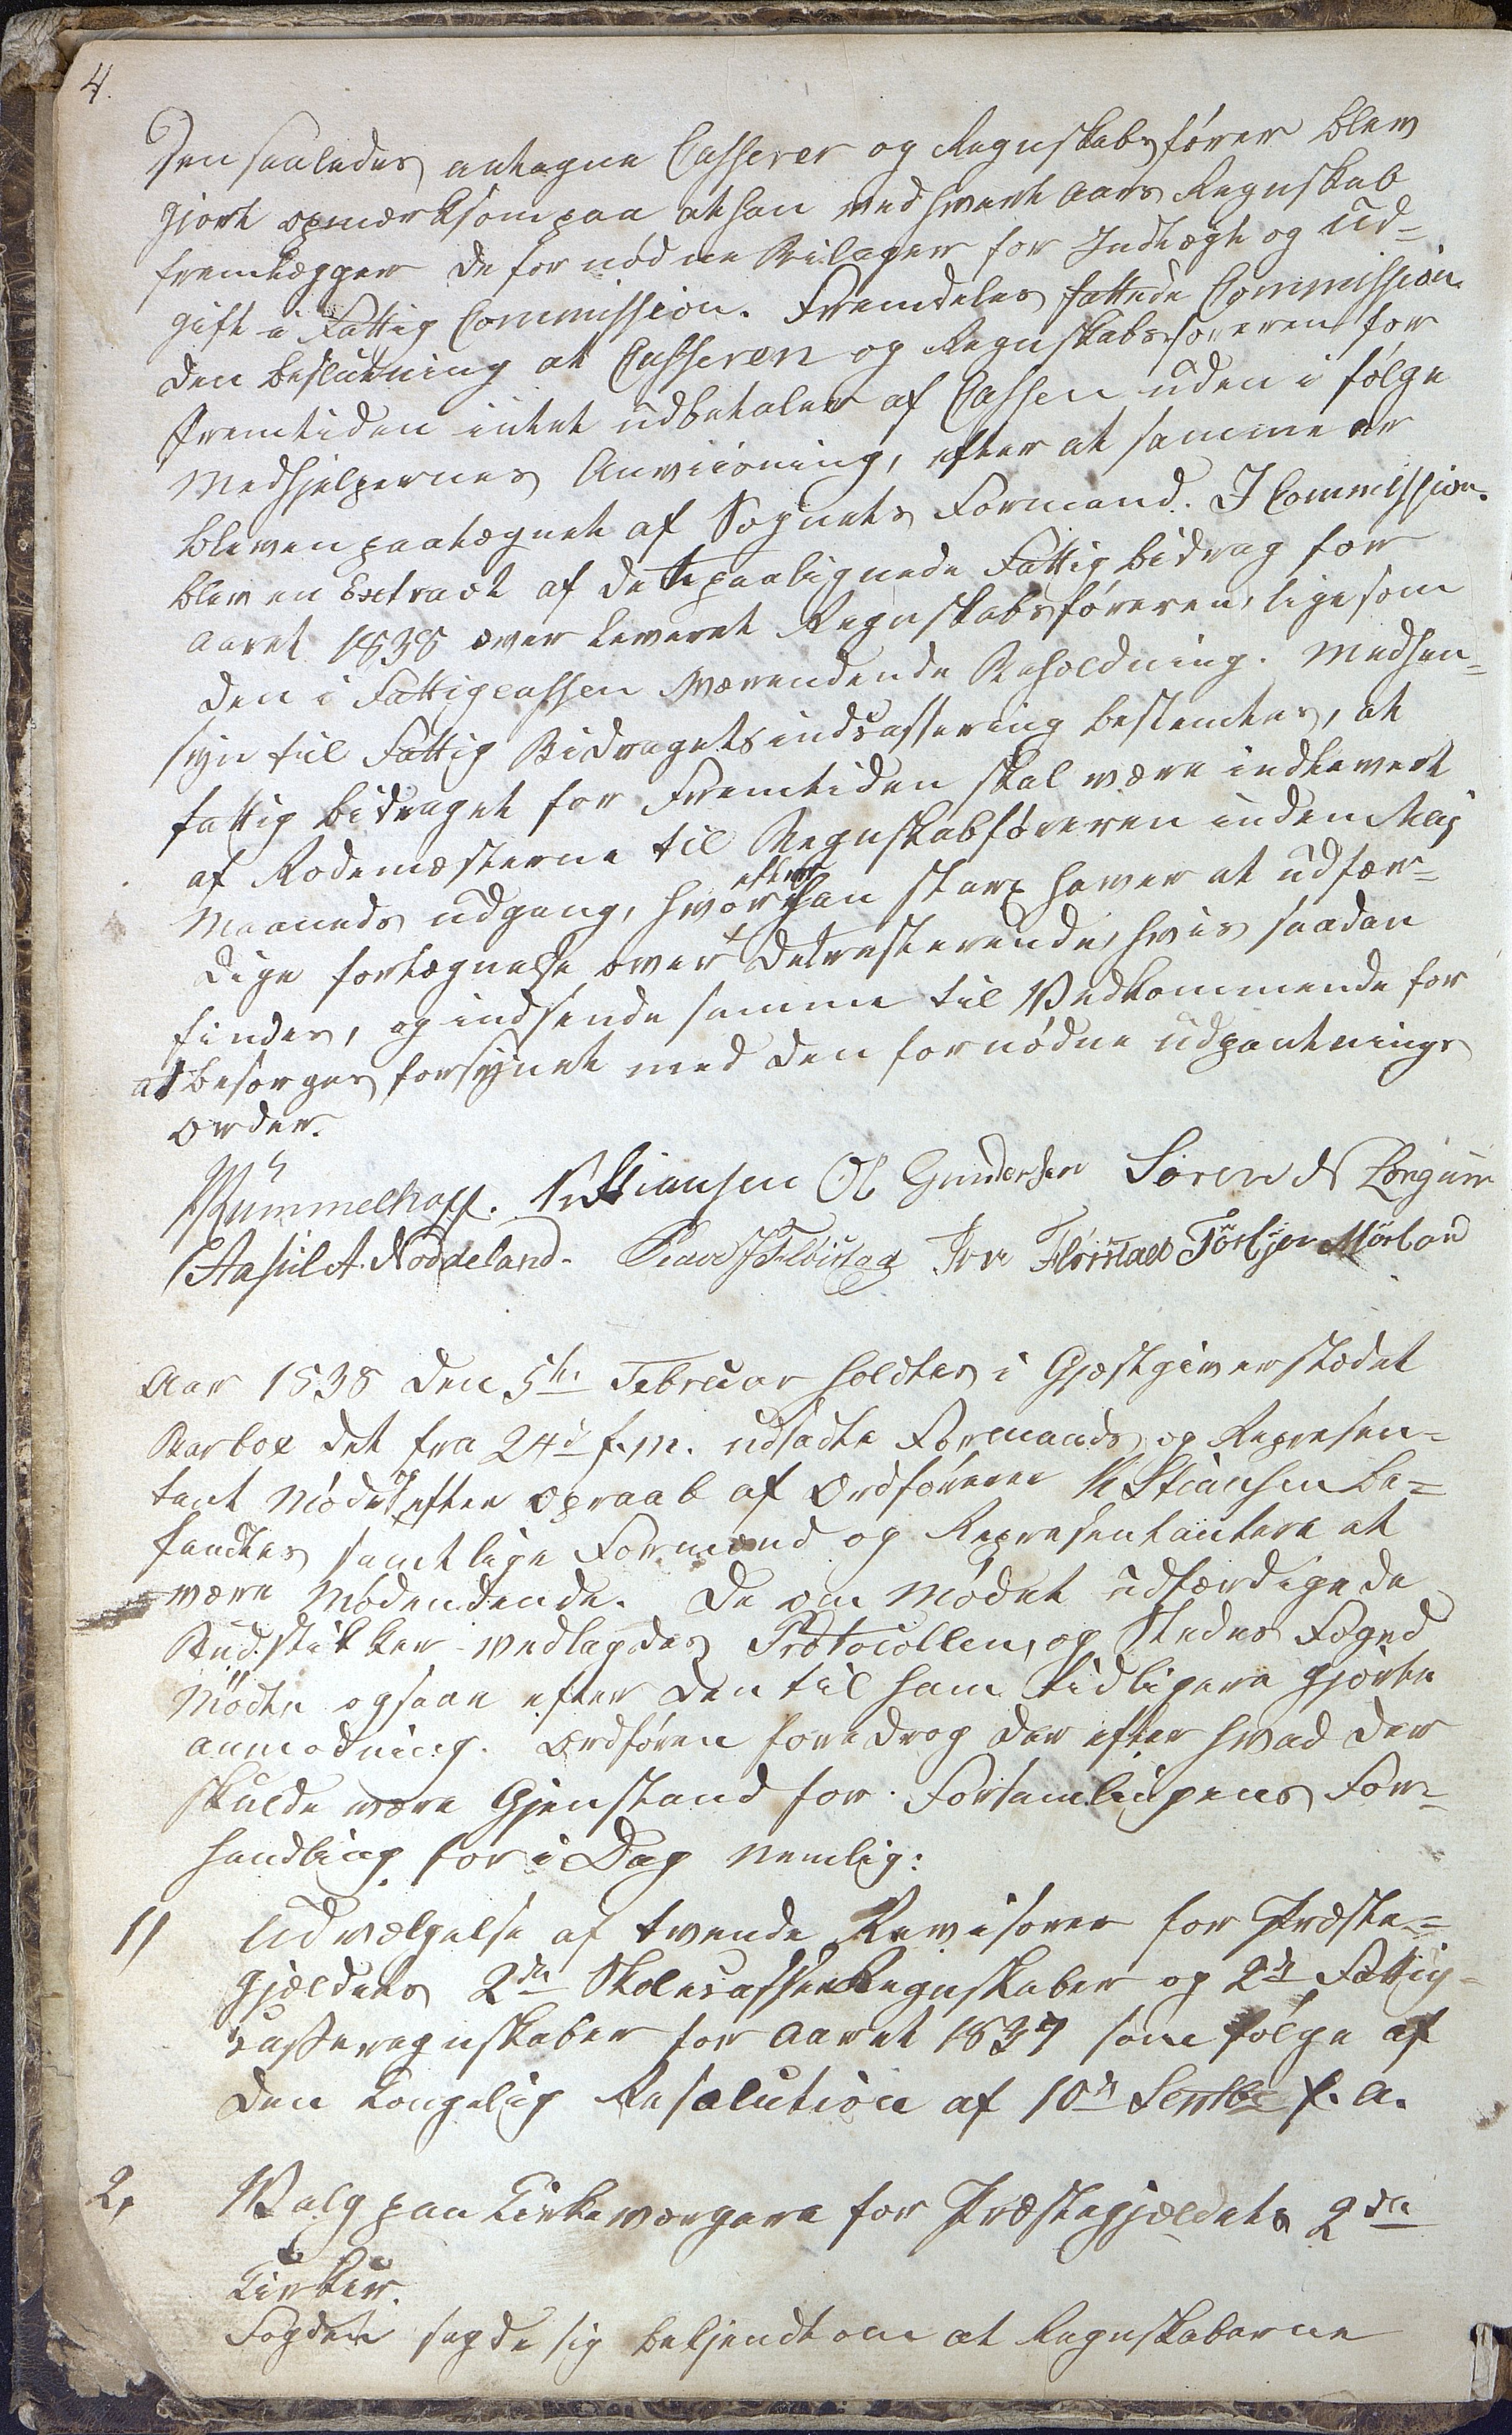 4.
Den saaledes antagne Casserer og Regnskabsfører blev
gjort opmærksom paa at han ved hvert Aars Regnskab
fremlægger de fornødne Bilager for Indtægt og Ud=
gift i Fattig Commission. Fremdeles fattede Commission.
den Beslutning at Casseren og Regnskabsføreren for
Fremtiden intet udbetaler af Cassen uden i følge
Medhjelpernes Anviisning, efter at samme er
bleven paategnet af Sognets Formand. I Commission.
blev en Extract af det paalignede Fattigbidrag for
Aaret 1838 over leveret Regnskabsføreren, ligesom
den i Fattigcassen værendende Beholdning. Med hen=
syn til Fattig Bidragets indcassering bestemtes, at
fattig bidraget for Fremtiden skal være indleveret
af Rodemesterne til Regnskabføreren inden Maj
Maaneds udgang, hvorefter han strax haver at udfær=
dige fortegnelse over det resterende, hvis saadan
findes, og indsende samme til Vedkommende for
at besørges forsynet med den fornødne udpantnings
order.
Rummelhoff. Stiansen Ol Gundersen Søren N Longum
Aasul A. Noddeland. Flørstad Tor Torbjørn Mørland
Aar 1838 den 5te Februar holdtes i Gjæstgiverstædet
Barboe det fra 24d f.M. udsadte Formands og Represen=
tant Møde, efter opraab af Ordføreren Stiansen be=
fandtes samtlige Formænd og Representantere at
være Mødendende. De om Mødet udfærdigede
Budstikker vedlagdes Protocollen, og Stedes Foged
Mødte ogsaa efter den til ham tidligere gjorte
anmodning. Ordføren foredrog der efter hvad der
skulde være Gjenstand for Forsamlingens For=
handling for i Dag nemlig:
1) Udvælgelse af tvende Revisorer for Præste=
gjældets 2de Skolecasse Regnskaber og 2de Fattig=
Casseregnskaber for Aaret 1837 som følge af
den Kongelig Resolution af 10de Septbr f. A.
2, Valg paa Kirkeværgere for Præstegjældets 2de
Kirker.
Fogden sagde sig bekjendt om at Regnskaberne